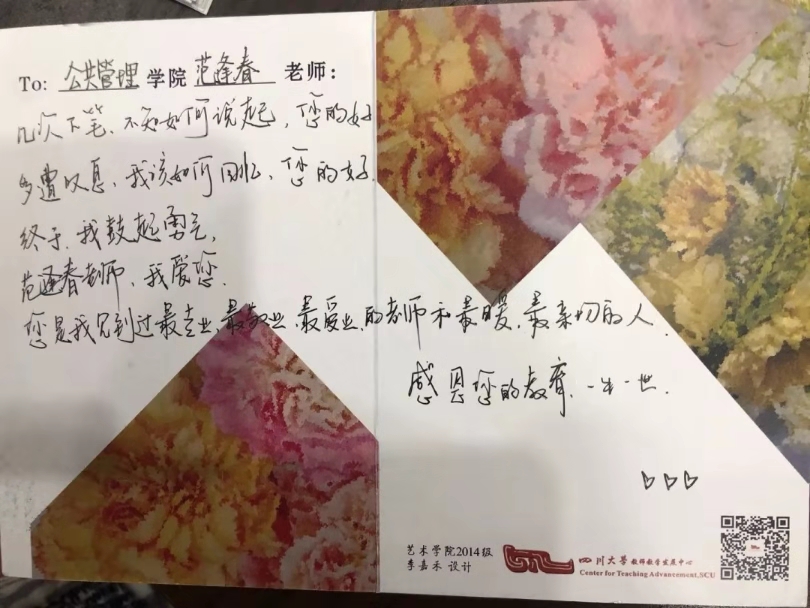 To: 公共管理 学院 范逢春 老师:
几次下笔、不知如何说起,您的好
多遭叹息,我该如何回忆,您的好.
终于,我鼓起勇气,
范逢春老师,我爱您.
您是我见到过最专业,最敬业,最爱业,的老师和最暖,最亲切的人.
感恩您的教育,一生一世.
艺术学院2014级
李嘉禾 设计
四川大学 教师教学发展中心
Center for Teaching Advancement,SCU